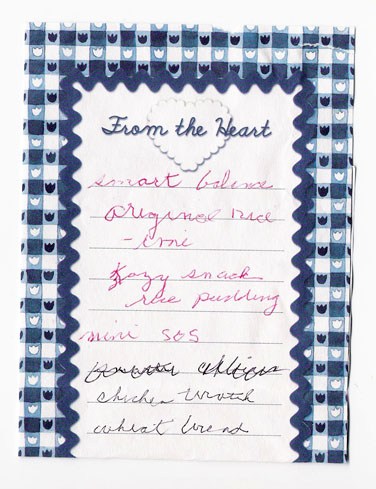 From the Heart
smart balance
original rice
Kozy snack
rice pudding
mini SOS
chicken
wheat bread